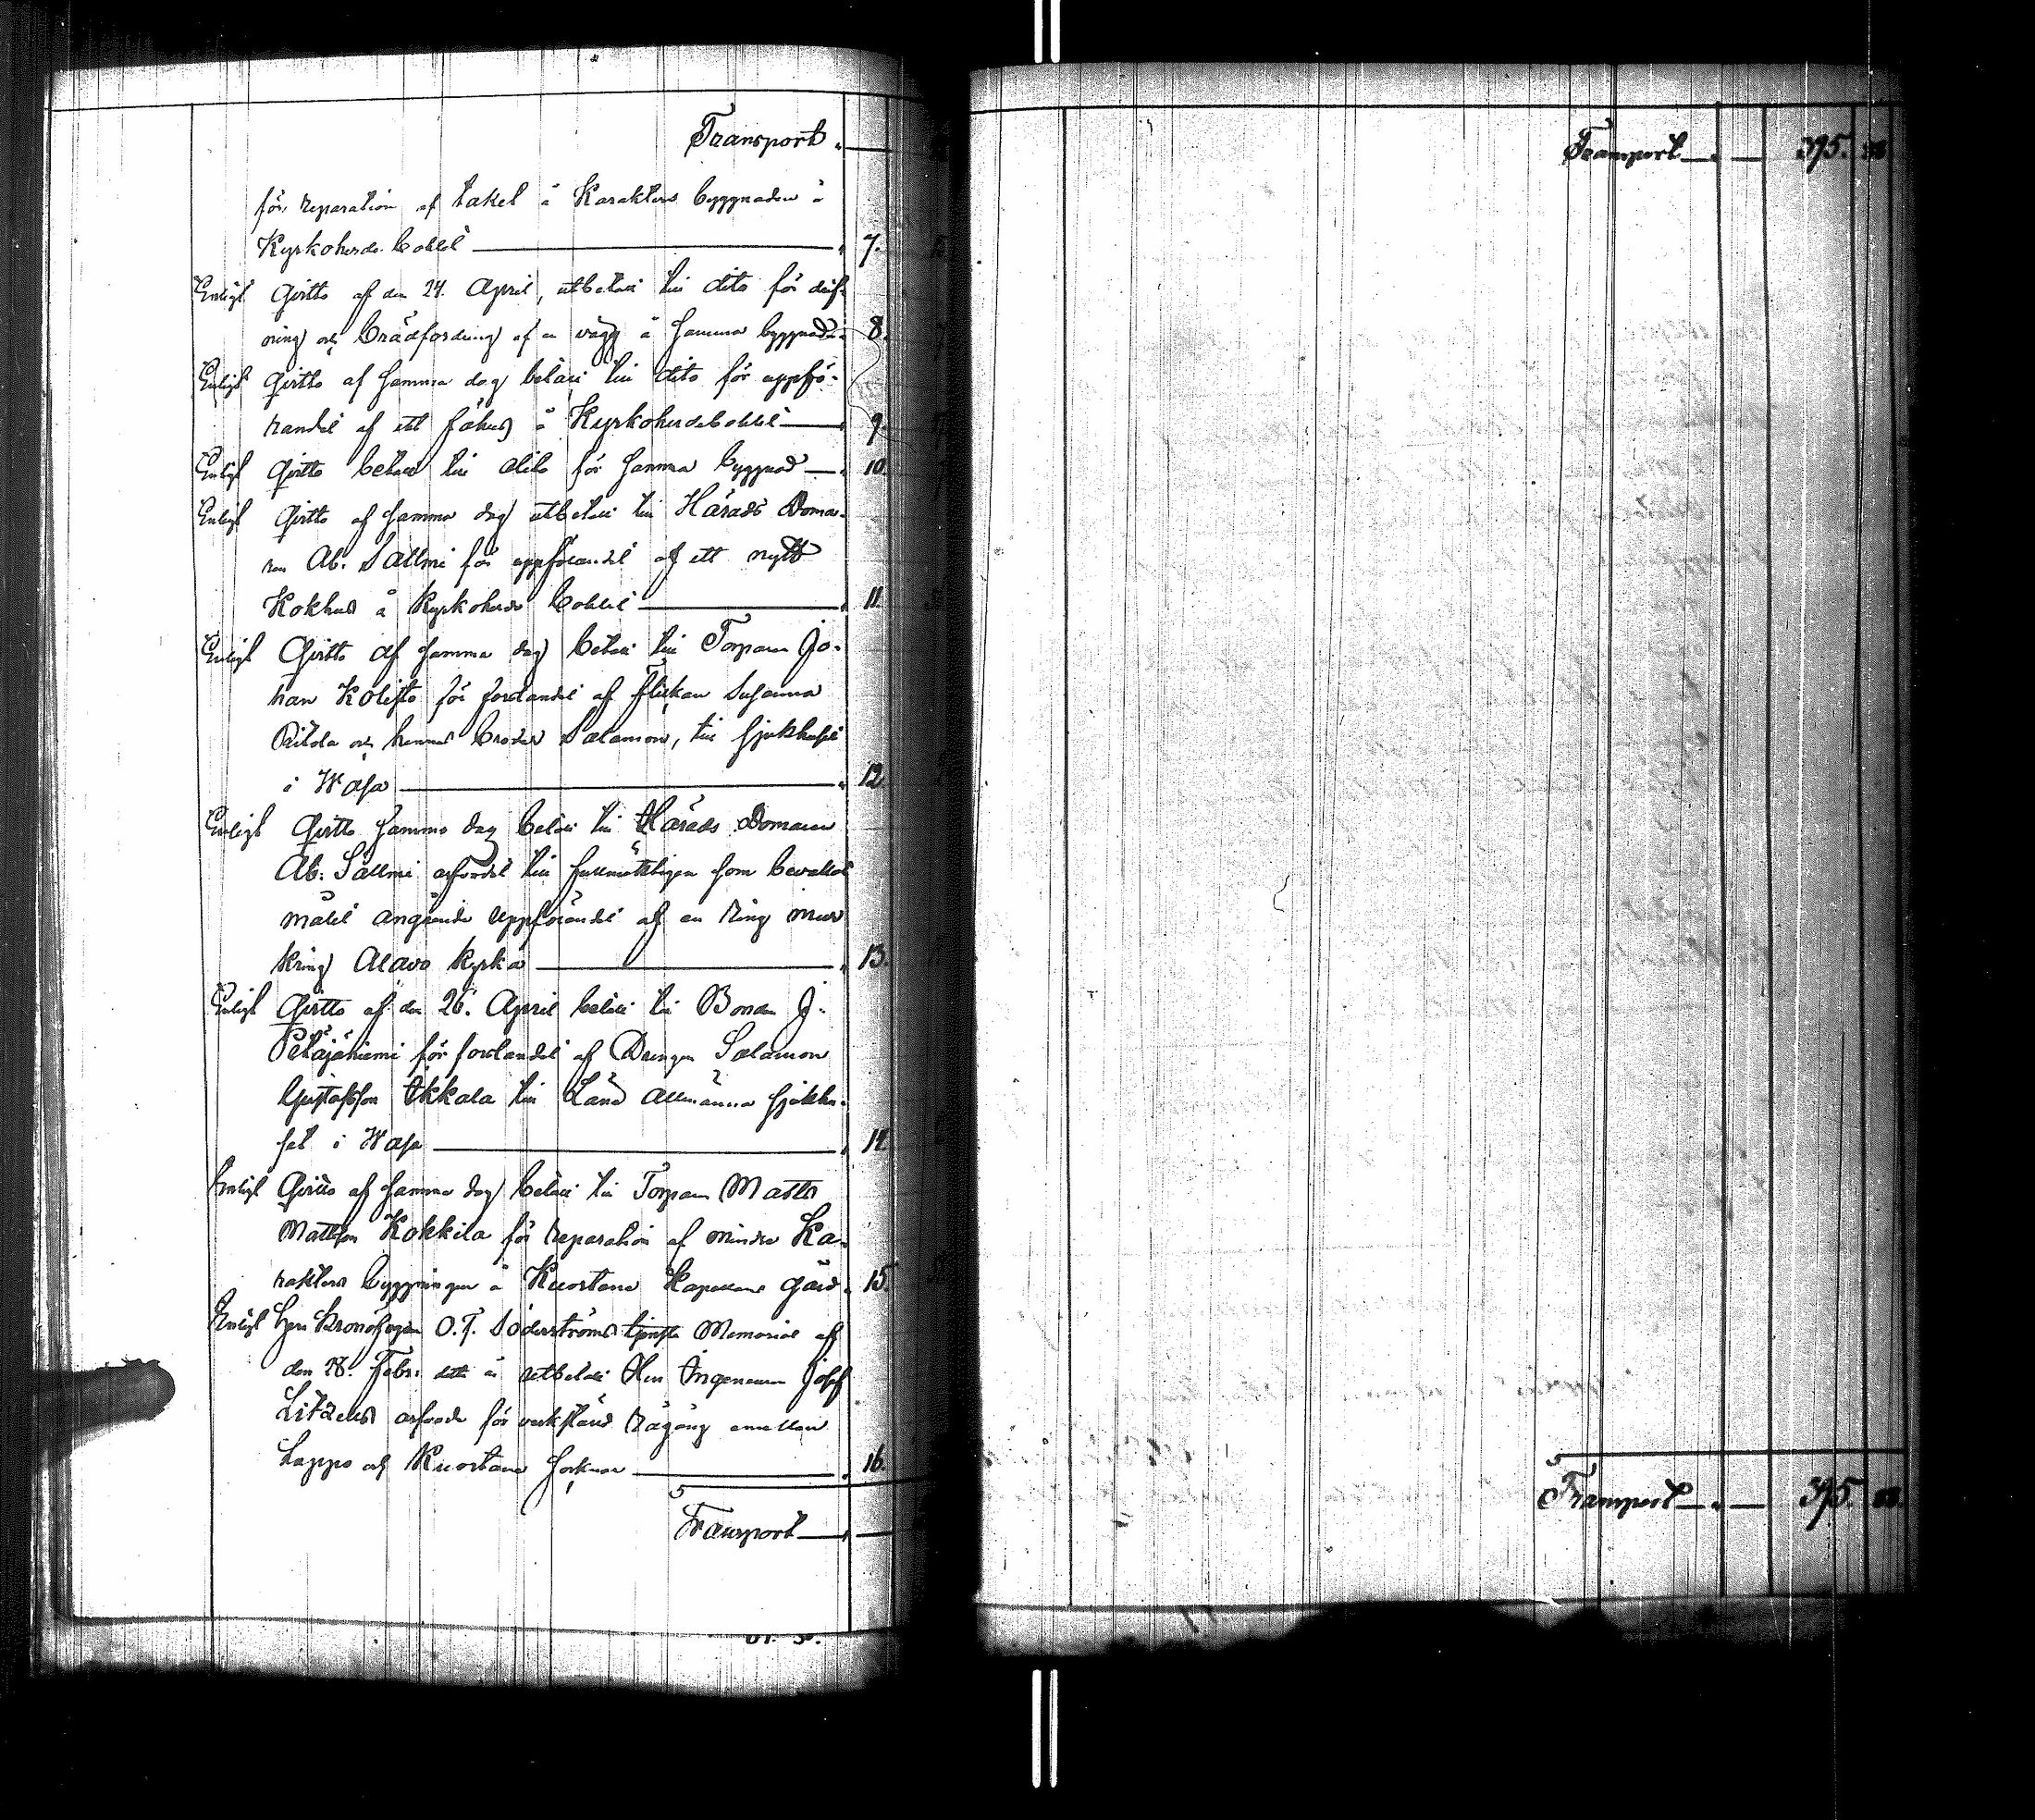 Transport
för reparation af taket å Karakters byggnaden å
Kyrkoherde Bohlet 7.
Enligt Qvitto af den 24. April, utbetalt till dito för drif-
ning och brädfordring af en vägg å samma byggnad 8.
Enligt Qvitto af samma dag betalt till dito för uppfö-
randet af ett fähus å Kyrkoherdebohlet 9.
Enligt Qvitto betalt till dito för samma byggnad 10.
Enligt Qvitto af samma dag utbetalt till Härads Doma-
ren Ab. Sällmi för uppförandet af ett nytt
Kokhus å Kyrkoherde Bohlet 11.
Enligt Qvitto af samma dag betalt till Torparen Jo-
han Kolisto för forslandet af Flickan Susanna
och hennes broder Salamon, till sjukhuset
i Wasa 12
Enligt Qvitto samma dag betalt till Härads Domaren
Ab: Sällmi arfvodet till fullmäktigen som bevakat
målet angående uppförandet af en Ring mur
kring Alavo kyrka 13.
Enligt Qvitto af den 26. April betalt till Bonden J.
Petäjäniemi för forslandet af Drengen Salamon
Gustafsson Akkala till Läns Allmänna sjukhu-
set i Wasa 14.
Enligt Qvitto af samma dag betalt till Torparen Matts
Mattsson Kokkila för reparation af mindre Ka-
rakters byggningen å Kuortane Kapellans gård 15.
Enligt Herr Kronofogden O. F. Söderströms tjenste Memorial af
den 28. Febr: detta år utbetalt Herr Ingenieuren Josef
Litzelius arfvode för verkstäld Rågång emellan
Lappo och Kuortane socknar 16.
Transport
Transport 395.
Transport 395.